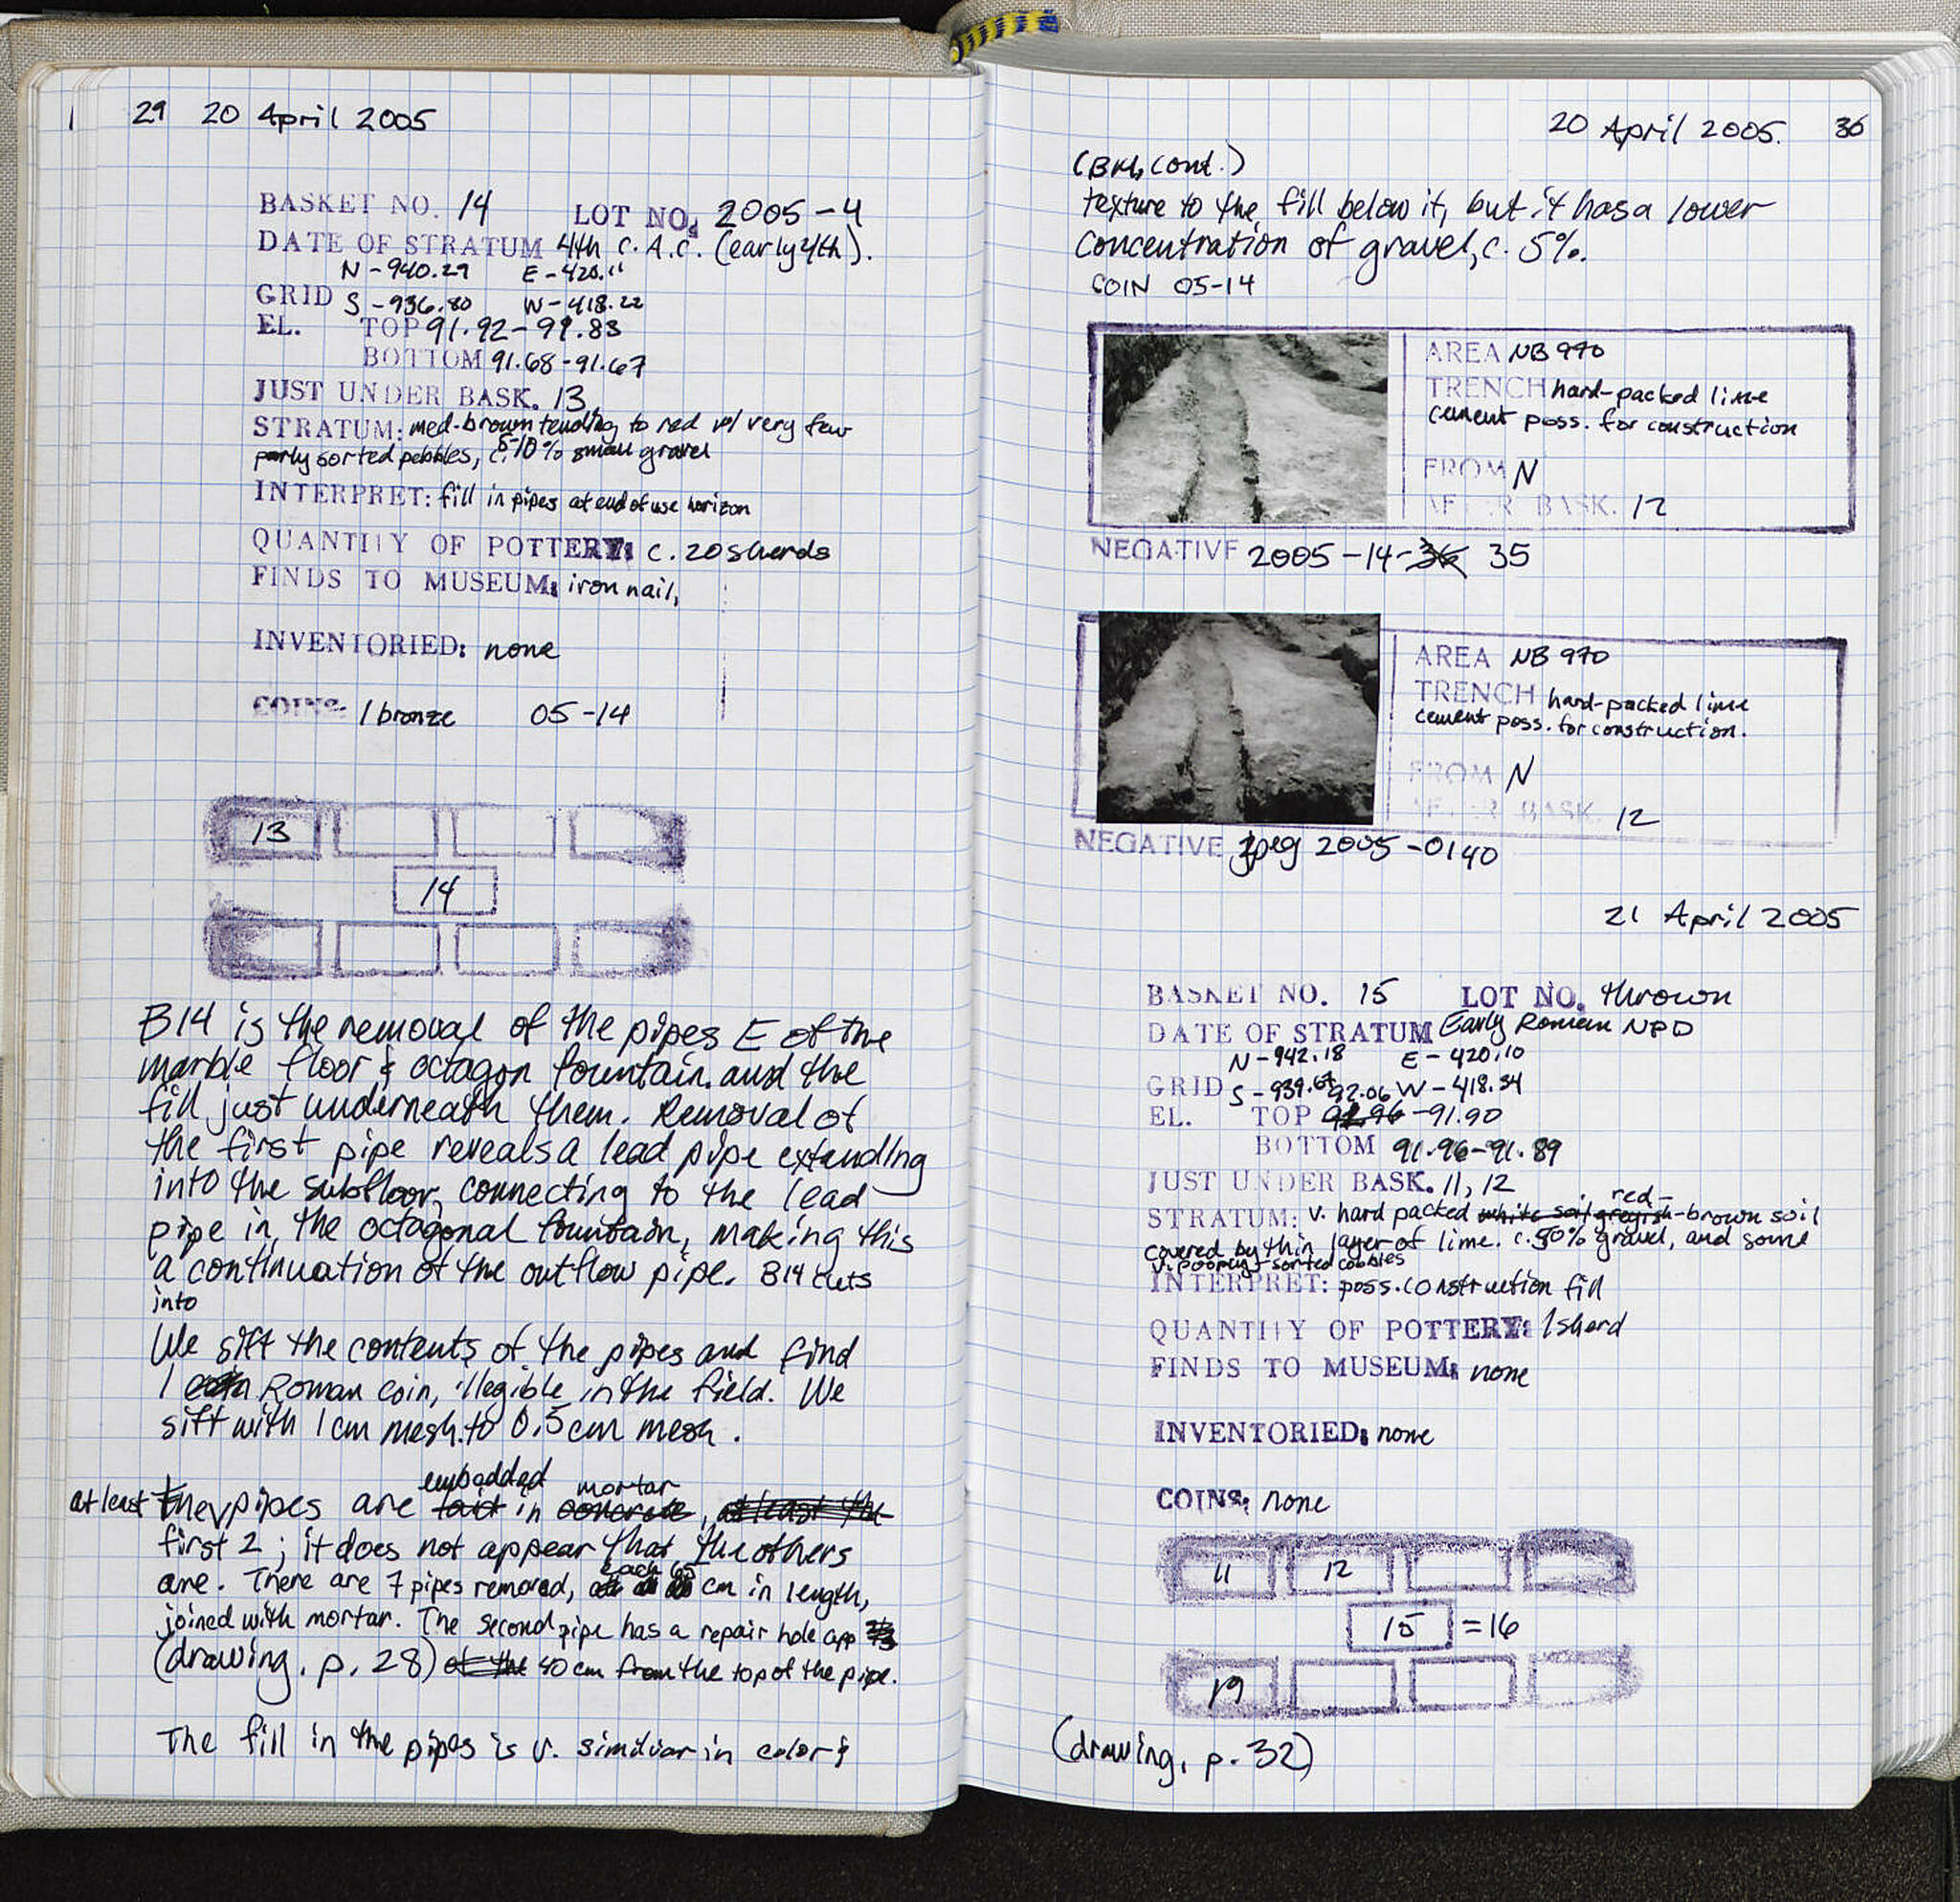 29 20 April 2005
BASKET NO. 14 LOT NO. 2005-4
DATE OF STRATUM 4th c. A.C. (early 4th).
N-940.29 E-420.11
GRID S-936.80 W-418.22
EL. TOP 91.92-91.83
BOTTOM 91.68-91.67
JUST UNDER BASK. 13
STRATUM: med-brown tending to red w/ very few
porly sorted pebbles, c. 5-10% small gravel
INTERPRET: fill in pipes at end of use horizon
QUANTITY OF POTTERY: c. 20 sherds
FINDS TO MUSEUM: iron nail,
INVENTORIED: none
COINS: 1 bronze 05-14
13
14
B14 is the removal of the pipes E of the
marble floor & octagon fountain. and the
fill just underneath them. Removal of
the first pipe reveals a lead pipe extending
into the subfloor, connecting to the lead
pipe in the octagonal fountain, making this
a continuation of the outflow pipe. B14 cuts
into
We sift the contents of the pipes and find
1 coin Roman coin, illegible in the field. We
sift with 1cm mesh to 0.5cm mesh.
embedded mortar
at least the pipes are laid in concrete, at least the
first 2; it does not appear that the others
are. There are 7 pipes removed, each 65 cm in length,
joined with mortar. The second pipe has a repair hole app
(drawing, p. 28) at the 40 cm from the top of the pipe.
The fill in the pipes is v. similiar in color &
20 April 2005. 30
(B14, cont.)
texture to the fill below it, but it has a lower
concentration of gravel, c. 5%.
COIN 05-14
AREA NB 970
TRENCH hard-packed lime
cement poss. for construction
FROM N
AFTER BASK. 12
NEGATIVE 2005-14-36 35
AREA NB 970
TRENCH hard-packed lime
cement poss. for construction.
FROM N
AFTER BASK. 12
NEGATIVE jpeg 2005-0140
21 April 2005
BASKET NO. 15 LOT NO. thrown
DATE OF STRATUM Early Roman NPD
N-942.18 E-420.10
GRID S-939.67 W-418.34
92.06
EL. TOP 91.96-91.90
BOTTOM 91.96-91.89
JUST UNDER BASK. 11, 12
red-
STRATUM: v. hard packed white soil greyish-brown soil
covered by thin layer of lime. c. 50% gravel, and some
v. poorly-sorted cobbles
INTERPRET: poss. construction fill
QUANTITY OF POTTERY: 1 sherd
FINDS TO MUSEUM: none
INVENTORIED: none
COINS: none
11 12
15 =16
19
(drawing, p. 32)